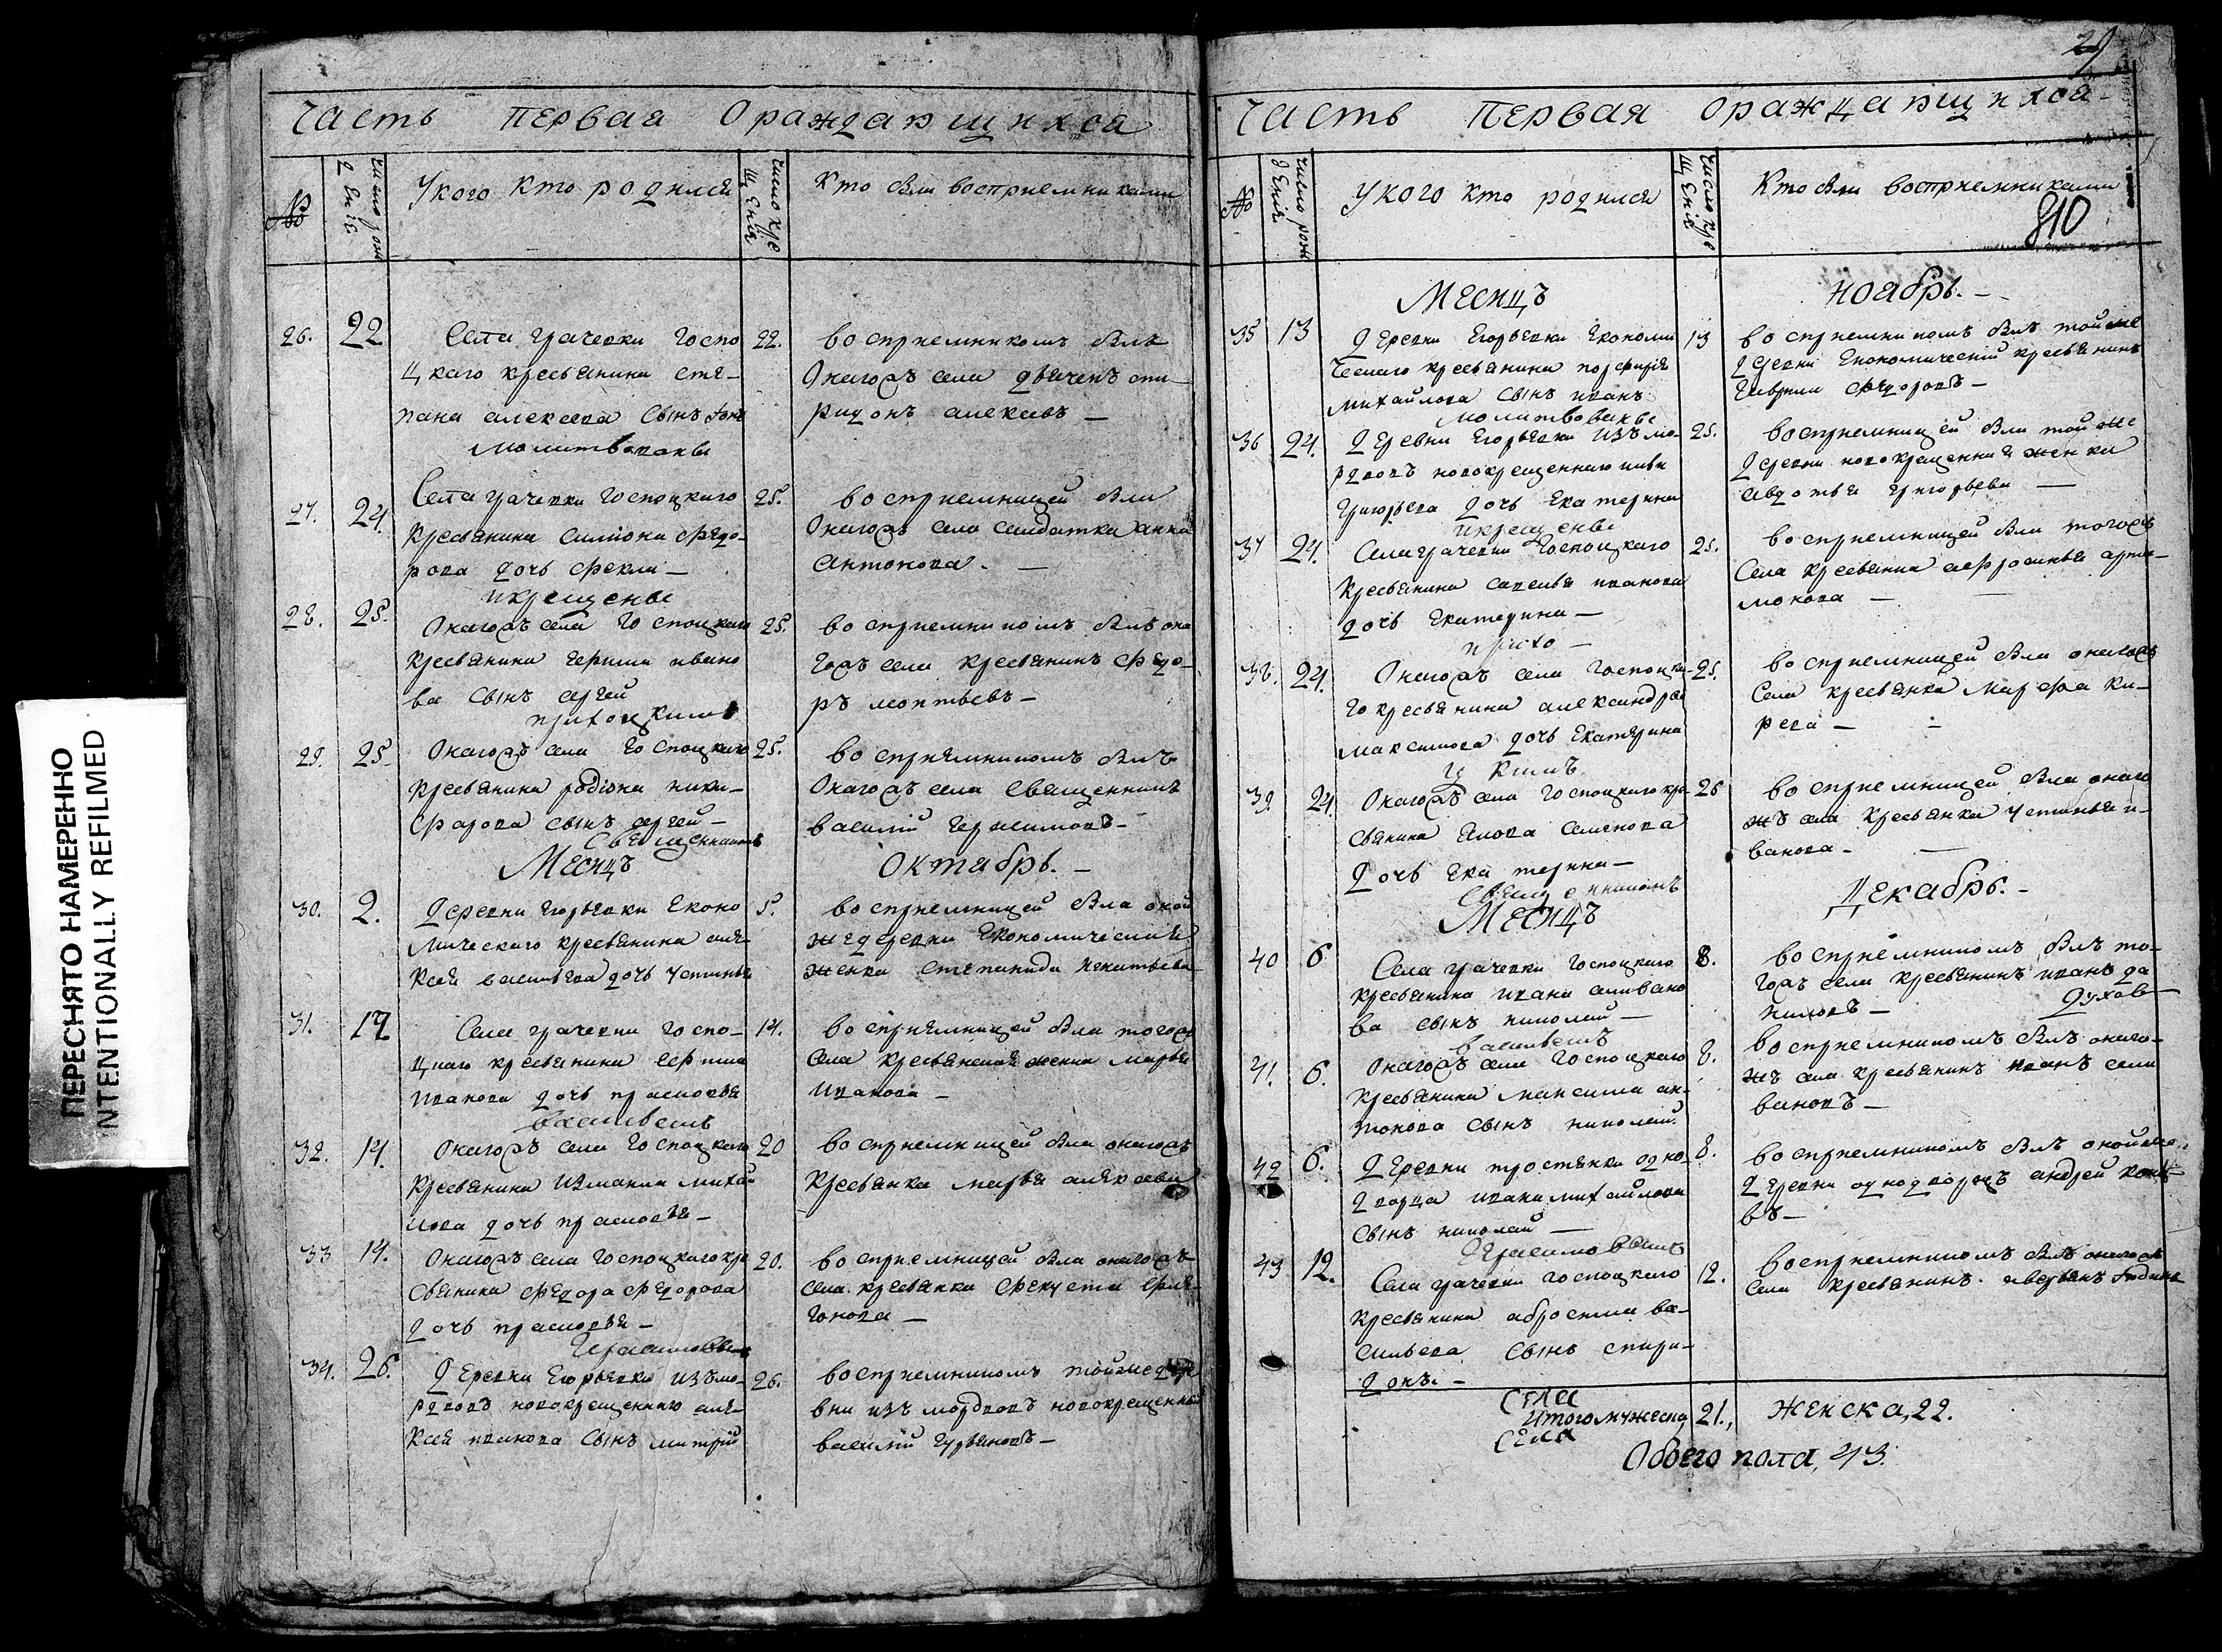 ПЕРЕСНЯТО НАМЕРЕННО
INTENTIONALLY REFILMED
Часть первая ораждаящихся
№
число рож
дения
У кого кто родился
число кре
щения
Кто были восприемниками
26. 22
Села грачевки госпо
цкаго кресьянина сте-
пана алексеева сынъ
молитвованы
22.
восприемникомъ былъ
Онагожъ села дьячекъ спи-
ридонъ алексевъ —
27. 24.
Села грачевки госпоцкаго
кресьянина симиона федо-
рова дочь фекла —
икрещены
25.
восприемницей была
Онагожъ села салдатка анна
антонова. —
28. 25.
Онагожъ села госпоцкаго
кресьянина герасима ивано
ва сынъ сергей
приходскимъ
25.
восприемникомъ былъ она
гожъ села кресьянинъ федо-
ръ леонтьевъ —
29. 25
Онагожъ села госпоцкаго
кресьянина родиона ники-
форова сынъ сергей —
священникомъ
25.
восприемникомъ былъ
Онагожъ села священникъ
василий герасимовъ —
Месицъ Октябрь. —
30. 2.
Деревни Егорьевки Еконо
мическаго кресьянина але-
ксея васильева дочь устинья
5.
восприемницей была оной
жедеревни Економическия
женка степанида игнатьева
31. 12
Села грачевки госпо-
цкаго кресьянина
иванова дочь прасковья
васильемъ
14.
восприемницей была тогожъ
села кресьянская женка марья
иванова —
32. 14.
Онагожъ села госпоцкаго
кресьянина измаила михай
лова дочь прасковья —
20
восприемницей была онагожъ
кресьянка марья алексеева
33 14.
Онагожъ села госпоцкаго кре
сьянина федора федорова
дочь прасковья —
Герасимовымъ
20.
восприемницей была онагожъ
села кресьянка
34. 26.
Деревни Егорьевки изъмо-
рдвовъ новокрещеннаго але-
ксея иванова сынъ митрий
26.
восприемникомъ тойже дере
вни изъ мордвовъ новокрещенный
василий гурьяновъ —
29
Часть первая ораждаящихся
№
число рож
дения
У кого кто родился
число кре
щения
Кто были восприемниками
810
Месицъ ноябрь. —
35 13
Деревни Егорьевки Економи
ческаго кресьянина порфирия
михайлова сынъ иванъ
молитвованы
13
восприемникомъ былъ тойже
деревни Економический кресьянинъ
гаврила федоровъ —
36 24.
Деревни Егорьевки изъмо-
рдвовъ новокрещеннаго
григорьева дочь екатерина
икрещены
25.
восприемницей была тойже
деревни новокрещенная женка
авдотья григорьева —
37 24.
Села грачевки госпоцкаго
кресьянина савелья иванова
дочь екатерина —
прихо —
25.
восприемницей была тогожъ
села кресьянка афросинья арта-
монова —
38. 24.
Онагожъ села госпоцка-
го кресьянина александра
максимова дочь екатерина
цкимъ
25.
восприемницей была онагожъ
села кресьянка марфа ки-
рева —
39. 24.
Онагожъ села госпоцкаго кре-
сьянина семенова
дочь екатерина —
священникомъ
26
восприемницей была онаго
жъ села кресьянка устинья и-
ванова —
Месицъ Декабрь. —
40 6
Села грачевки госпоцкаго
кресьянина ивана
ва сынъ николай —
васильемъ
8.
восприемникомъ былъ то-
гожъ села кресьянинъ иванъ да
ниловъ —
41. 6.
Онагожъ села госпоцкаго
кресьянина максима ан-
тонова сынъ николай.
8.
восприемникомъ былъ онаго-
жъ села кресьянинъ иванъ сели
вановъ —
42 6.
Деревни тростянки одно-
дворца ивана михайлова
сынъ николай —
Герасимовымъ
8.
восприемникомъ былъ онойже
деревни однодворецъ андрей
въ —
43 12.
Села грачевки госпоцкаго
кресьянина абросима ва-
сильева сынъ спири-
донъ. —
12.
восприемникомъ былъ онагожъ
села кресьянинъ
села
Итого мужеска, 21., женска, 22.
села
Обоего пола, 43.